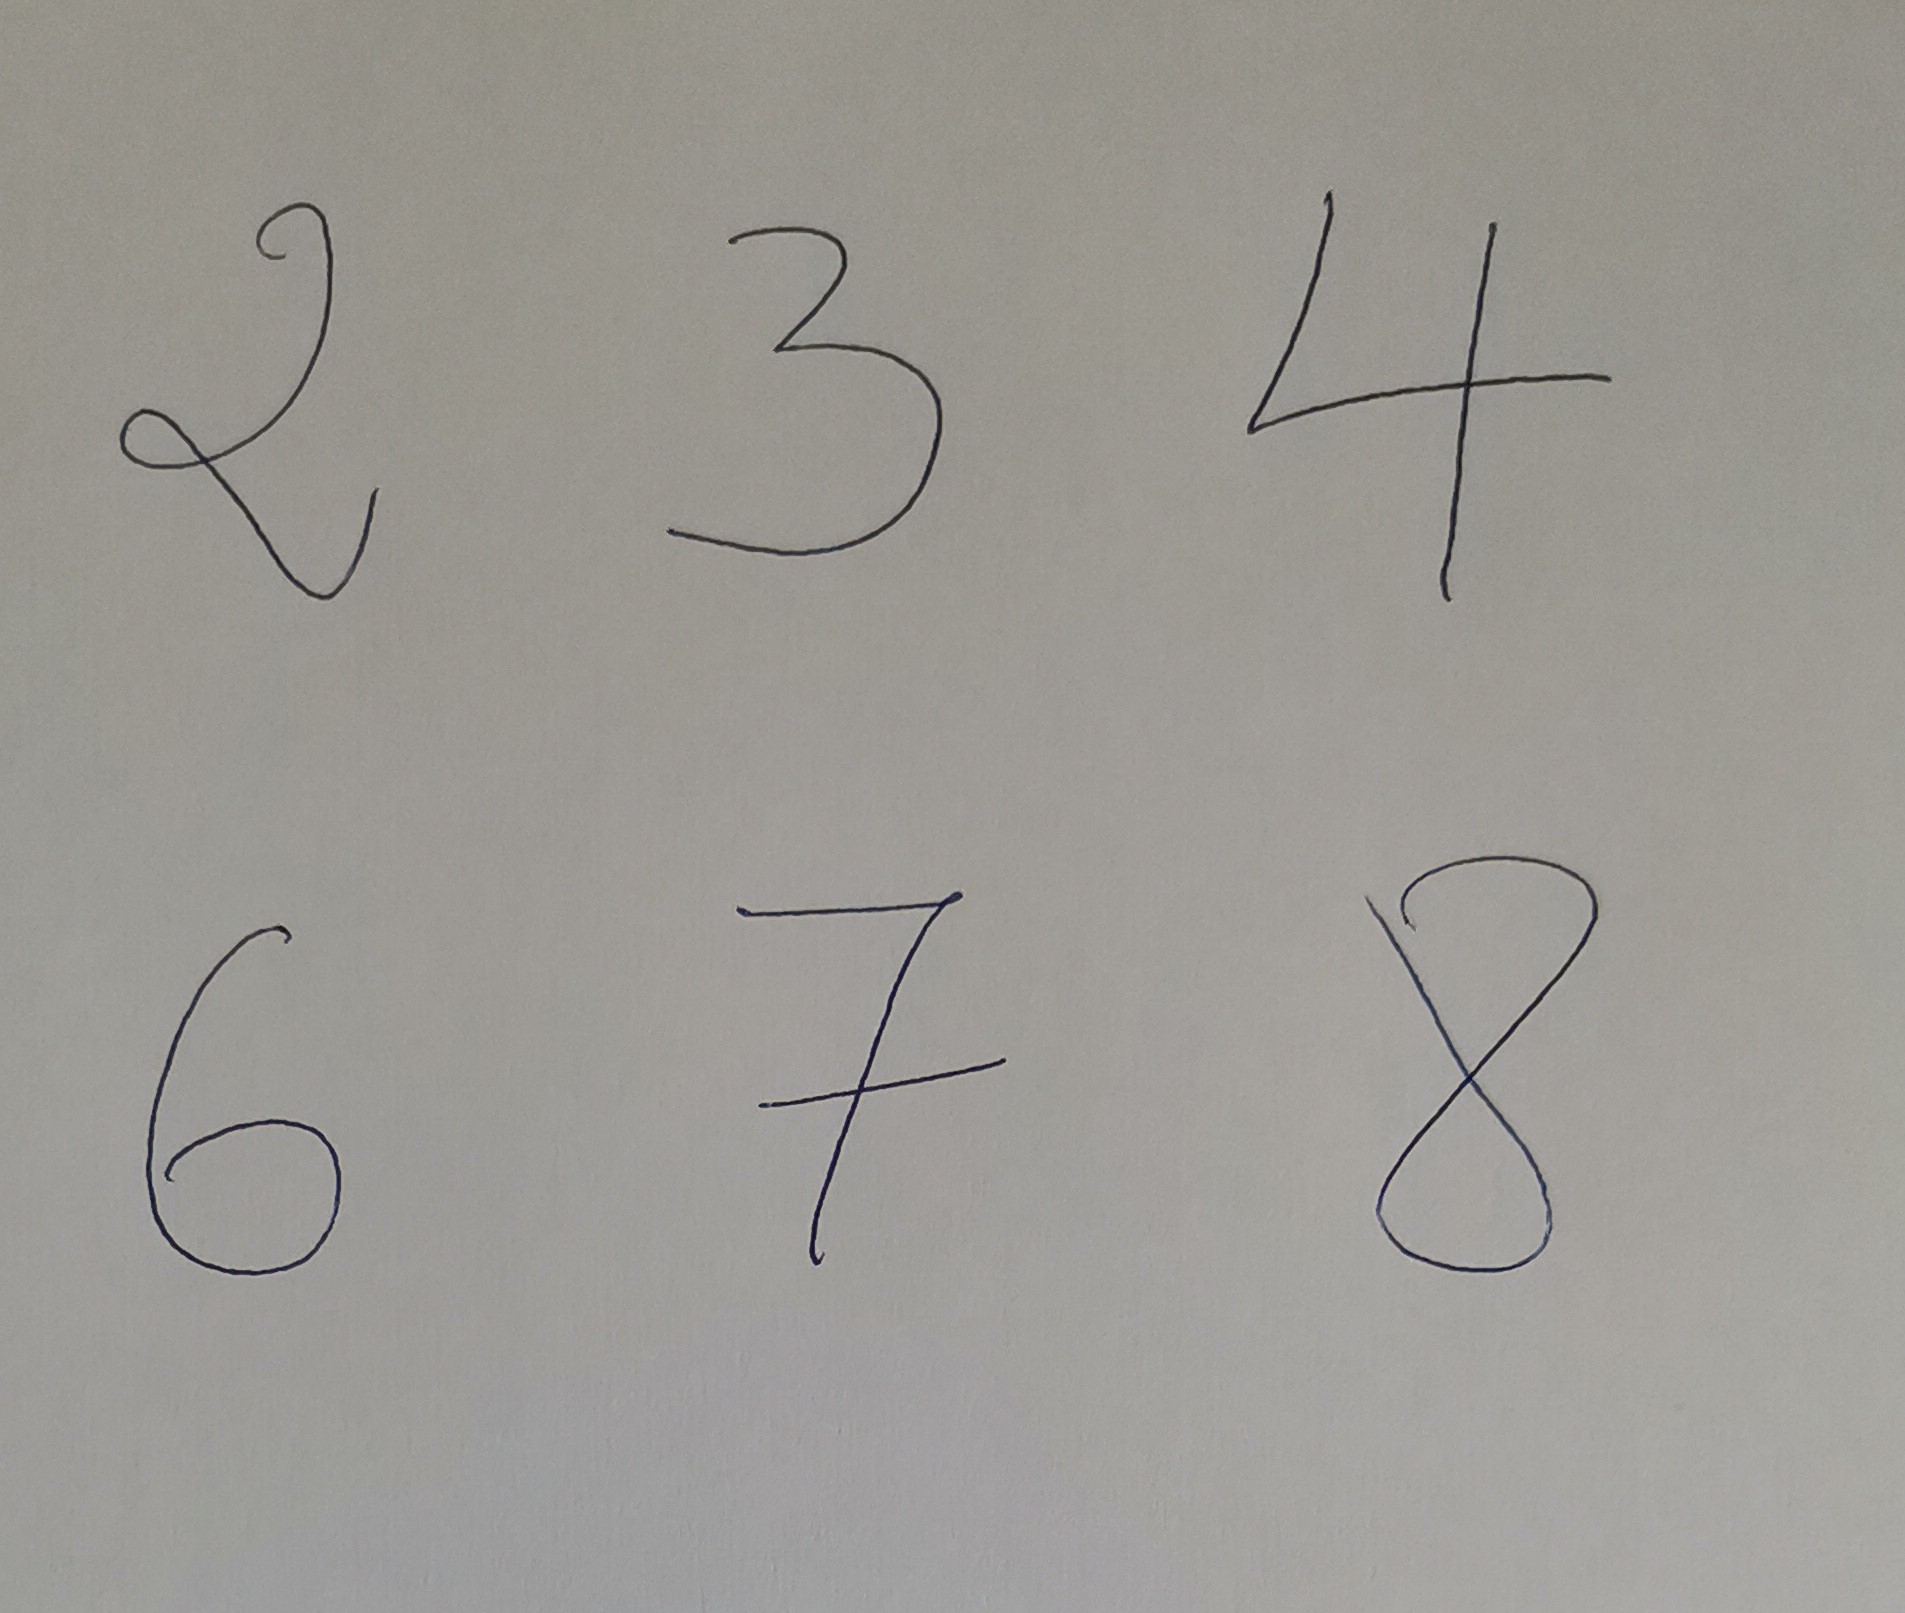 2 3 4
6 7 8